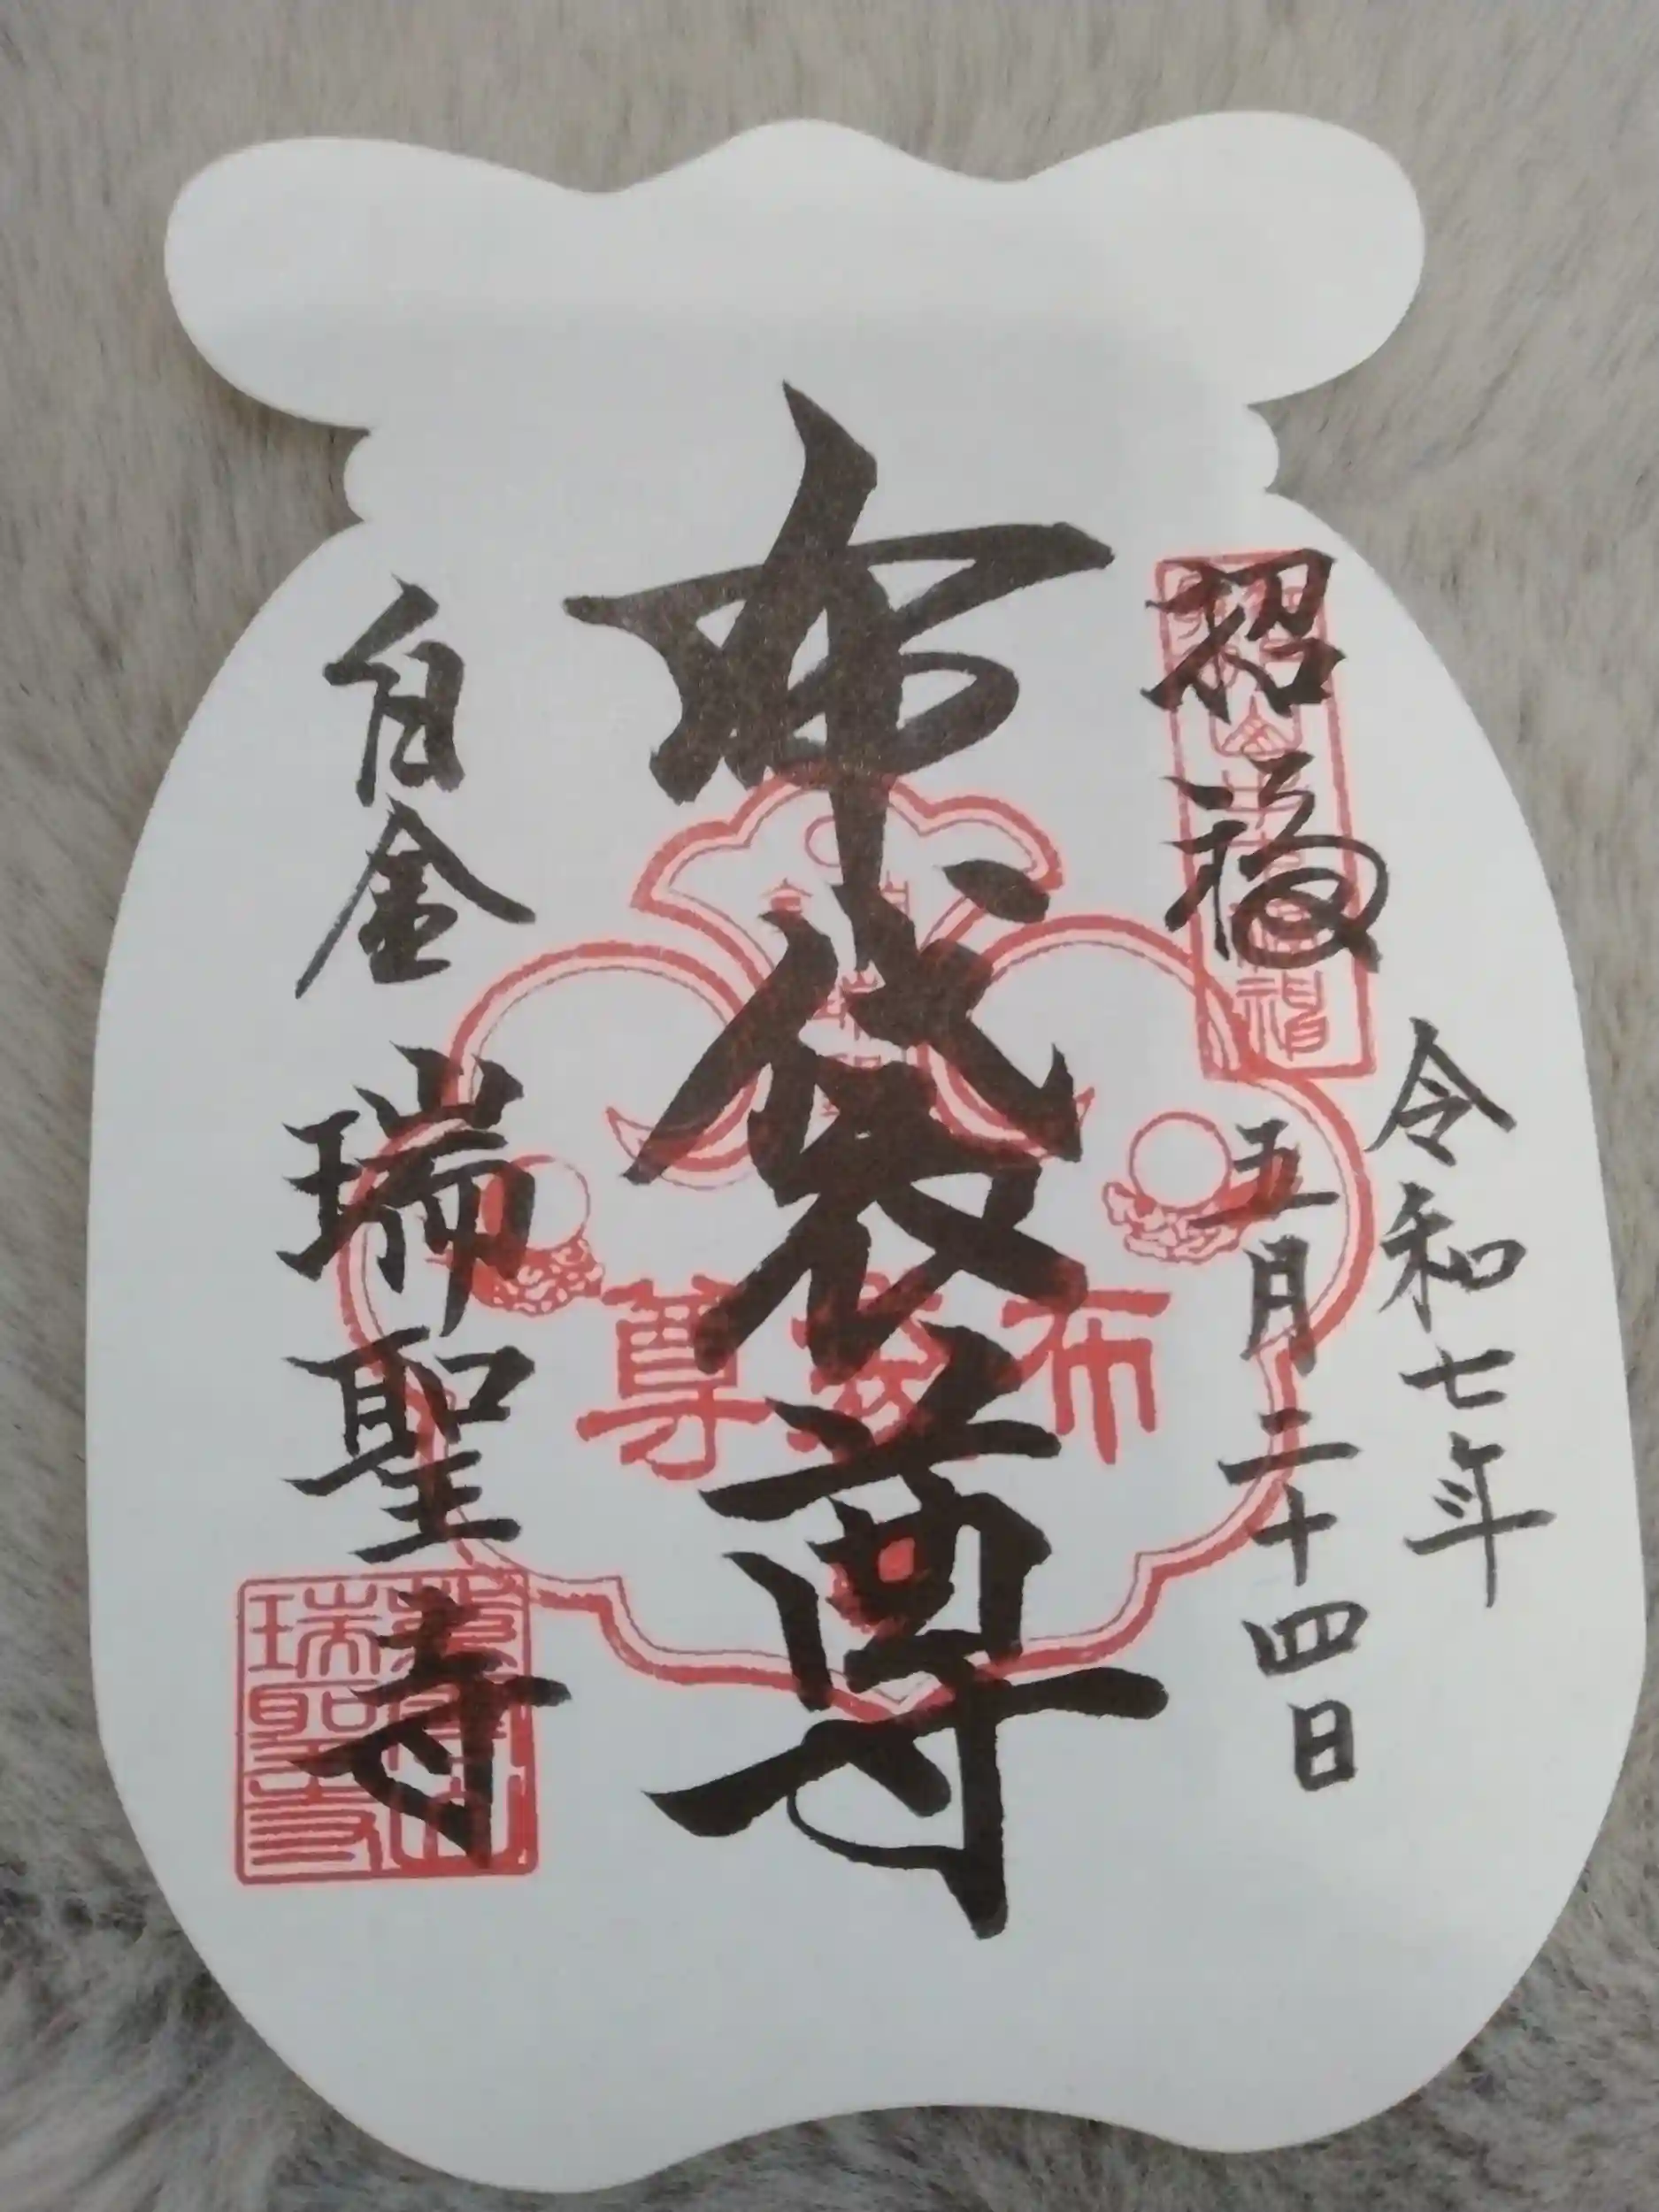 招福
令和七年
五月二十四日
布袋尊
白金
瑞聖寺
布袋尊
瑞聖寺